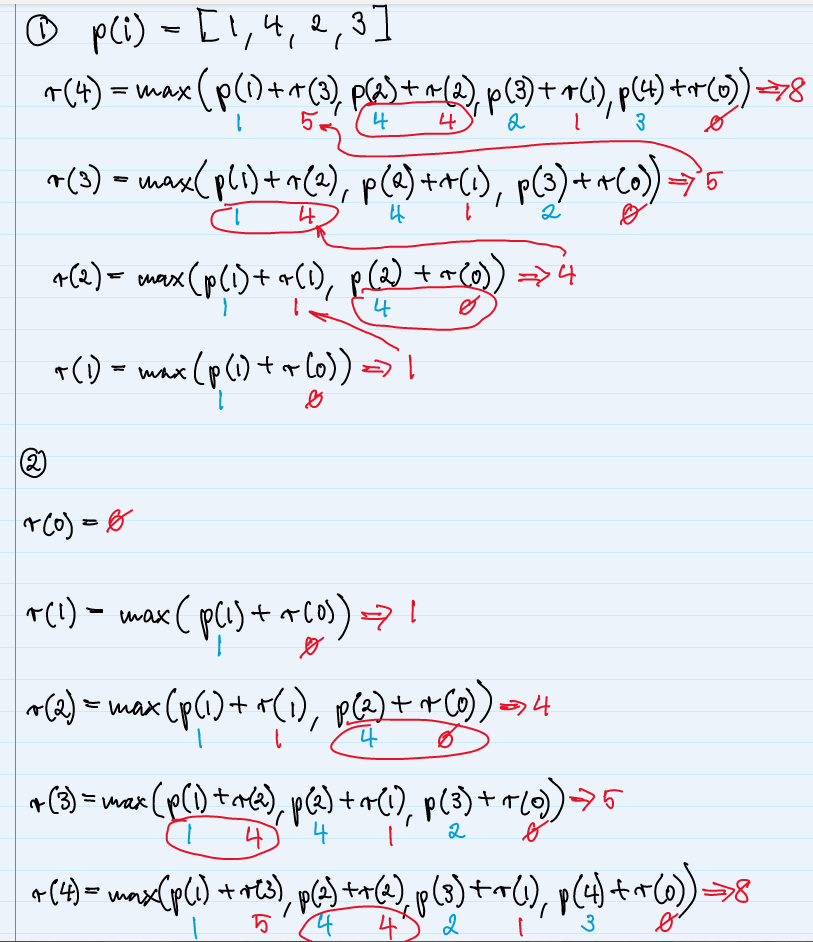 ① p(i) = [1, 4, 2, 3]
r(4) = max(p(1)+r(3), p(2)+r(2), p(3)+r(1), p(4)+r(0)) ⇒ 8
1 5 4 4 2 1 3 0
r(3) = max(p(1)+r(2), p(2)+r(1), p(3)+r(0)) ⇒ 5
1 4 4 1 2 0
r(2) = max(p(1)+r(1), p(2)+r(0)) ⇒ 4
1 1 4 0
r(1) = max(p(1)+r(0)) ⇒ 1
1 0
②
r(0) = 0
r(1) = max(p(1)+r(0)) ⇒ 1
1 0
r(2) = max(p(1)+r(1), p(2)+r(0)) ⇒ 4
1 1 4 0
r(3) = max(p(1)+r(2), p(2)+r(1), p(3)+r(0)) ⇒ 5
1 4 4 1 2 0
r(4) = max(p(1)+r(3), p(2)+r(2), p(3)+r(1), p(4)+r(0)) ⇒ 8
1 5 4 4 2 1 3 0